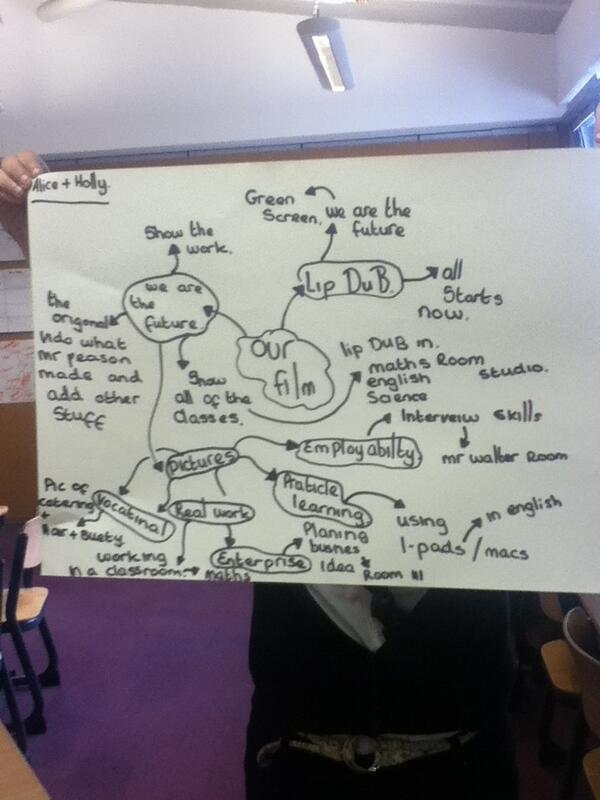 Alice + Holly.
Green
Screen.
we are the
future
Show the
work.
Lip DuB.
all
Starts
now.
we are
the
future
the
origonal
do what
mr peason
made and
add other
stuff
our
film
Show
all of the
classes.
lip DuB in.
maths Room
english
Science
studio.
Interveiw skills
Employabilty
mr walter Room
pictures
Pic of
catering
+
Hair + Buety
Vocatinal
Real work
Praticle
learning
using
I-pads/macs
in english
working
in a classroom.
maths
Enterprise
Planing
busnes
Idea
Room 111